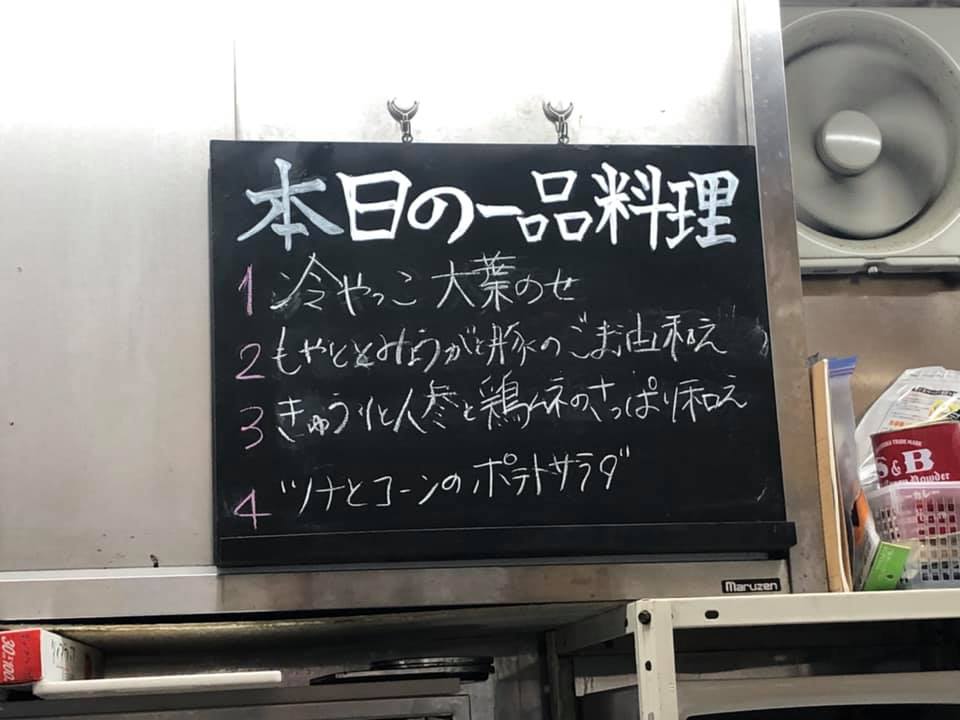 本日の一品料理
1 冷やっこ 大葉のせ
2 もやしとみょうがと豚のごま油和え
3 きゅうりと人参と鶏ムネのさっぱり和え
4 ツナとコーンのポテトサラダ
Maruzen
TRADE MARK
S&B
Powder